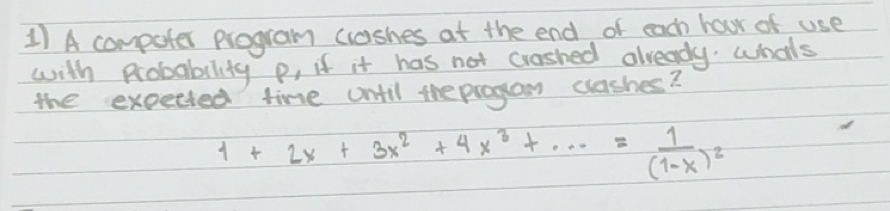 1) A computer program crashes at the end of each hour of use
with probability p, if it has not crashed already. whats
the expected time until the program crashes?
1 + 2x + 3x² + 4x³ + ... = 1/(1-x)²